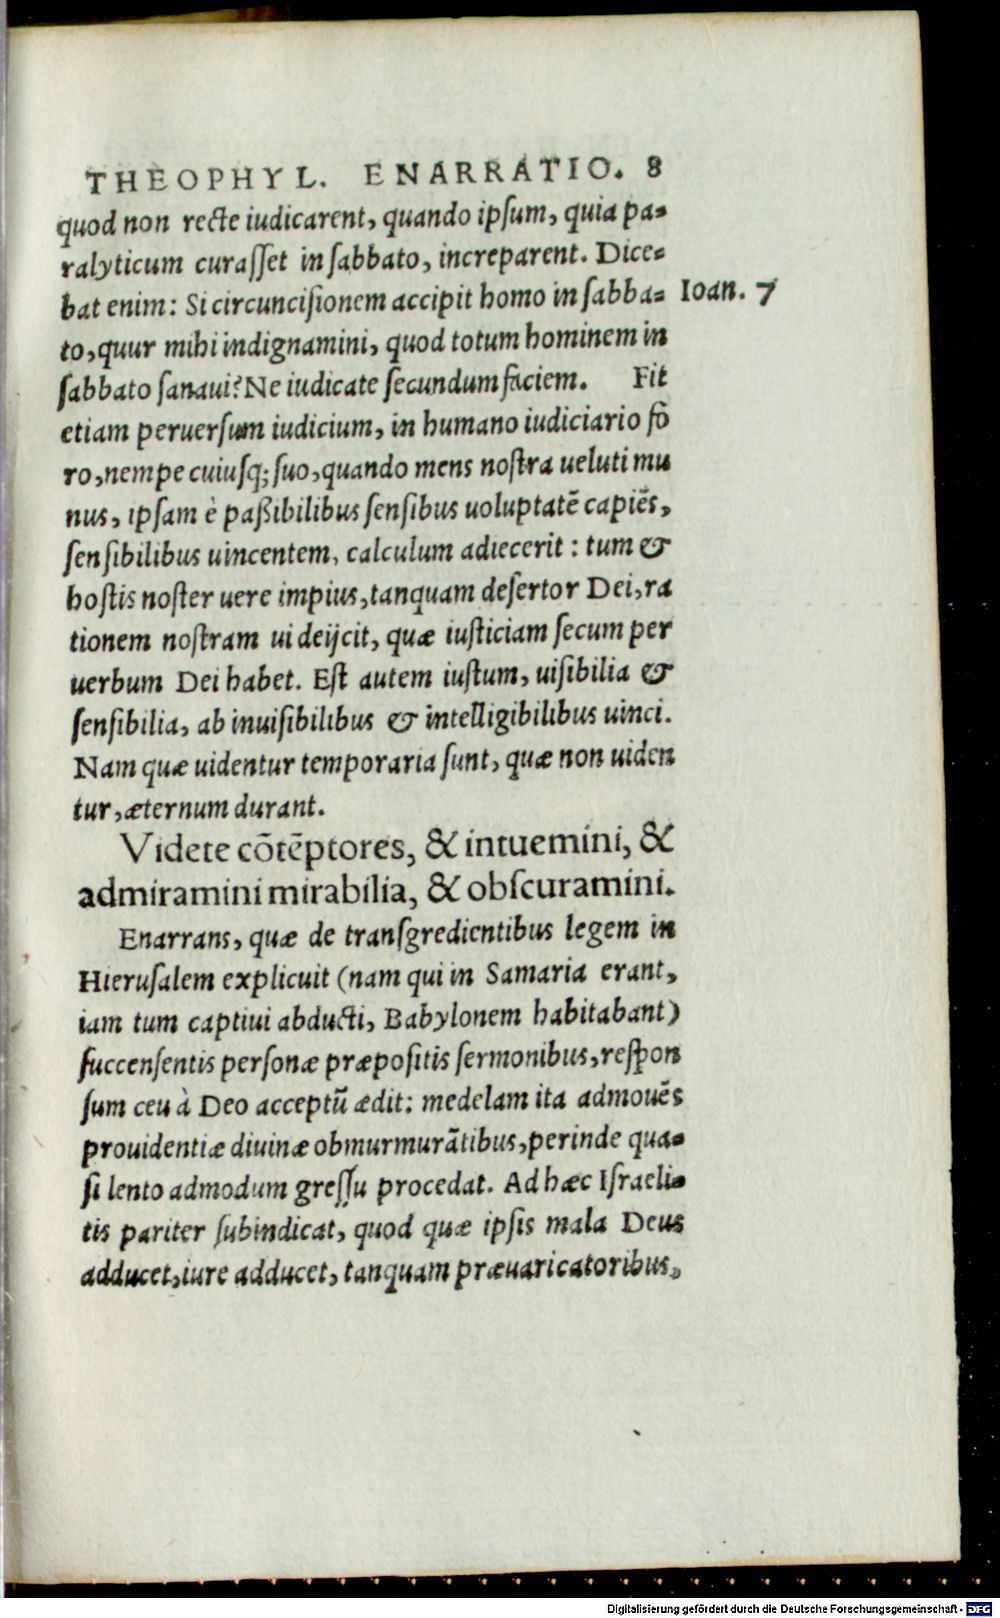 THEOPHYL. ENARRATIO. 8
quod non recte iudicarent, quando ipsum, quia pa-
ralyticum curaſſet in ſabbato, increparent. Dice-
bat enim: Si circunciſionem accipit homo in ſabba- Ioan. 7
to, quur mihi indignamini, quod totum hominem in
ſabbato ſanaui? Ne iudicate ſecundum faciem. Fit
etiam peruerſum iudicium, in humano iudiciario fo
ro, nempe cuiuſq; ſuo, quando mens noſtra ueluti mu
nus, ipſam è paßibilibus ſenſibus uoluptatē capiēs,
ſenſibilibus uincentem, calculum adiecerit: tum &
hoſtis noſter uere impius, tanquam deſertor Dei, ra
tionem noſtram ui deijcit, quæ iuſticiam ſecum per
uerbum Dei habet. Eſt autem iuſtum, uiſibilia &
ſenſibilia, ab inuiſibilibus & intelligibilibus uinci.
Nam quæ uidentur temporaria ſunt, quæ non uiden
tur, æternum durant.
Videte cōtēptores, & intuemini, &
admiramini mirabilia, & obſcuramini.
Enarrans, quæ de tranſgredientibus legem in
Hieruſalem explicuit (nam qui in Samaria erant,
iam tum captiui abducti, Babylonem habitabant)
ſuccenſentis perſonæ præpoſitis ſermonibus, reſpon
ſum ceu à Deo acceptū ædit: medelam ita admouēs
prouidentiæ diuinæ obmurmurātibus, perinde qua-
ſi lento admodum greſſu procedat. Ad hæc Iſraeli-
tis pariter ſubindicat, quod quæ ipſis mala Deus
adducet, iure adducet, tanquam præuaricatoribus,
Digitalisierung gefördert durch die Deutsche Forschungsgemeinschaft - DFG